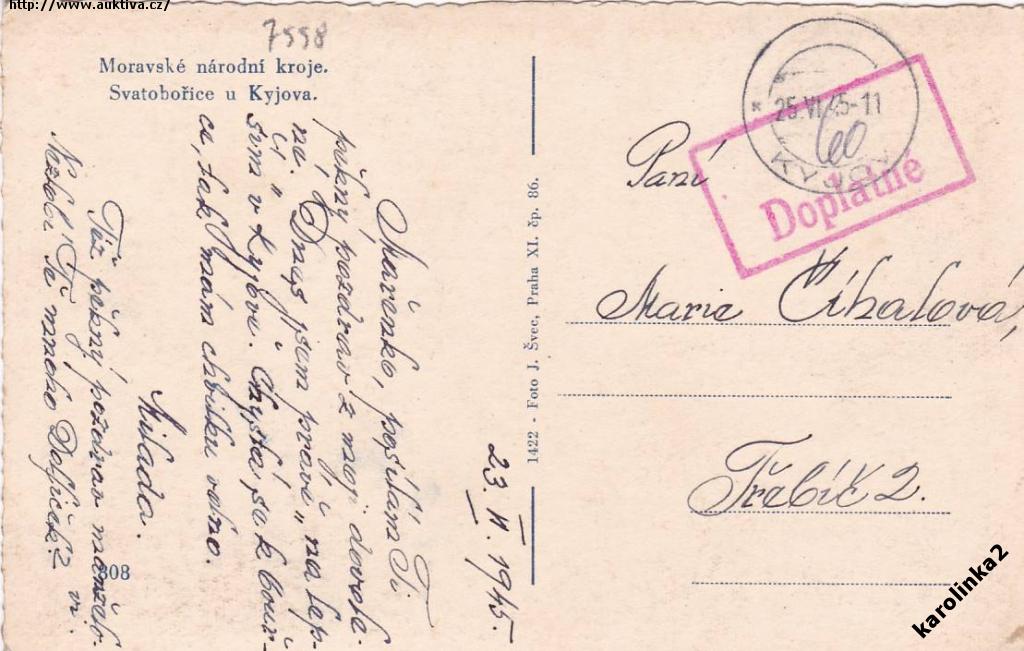 http://www.auktiva.cz/
7558
Moravské národní kroje.
Svatobořice u Kyjova.
Mařenko, posílám Ti
pěkný pozdrav z mojí dovole-
né. Dnes jsem právě „na
čí" v Kyjově. Chystá se k bouř-
ce, tak mám chvilku volno.
Milada.
Též pěkný pozdrav
Nezlobí Tě
808
23. VI. 1945.
1422 - Foto J. Švec, Praha XI. čp. 86.
25.VI.45-11
KYJOV
60
Doplatné
Paní
Marie Číhalová,
Třebíč 2.
karolinka2